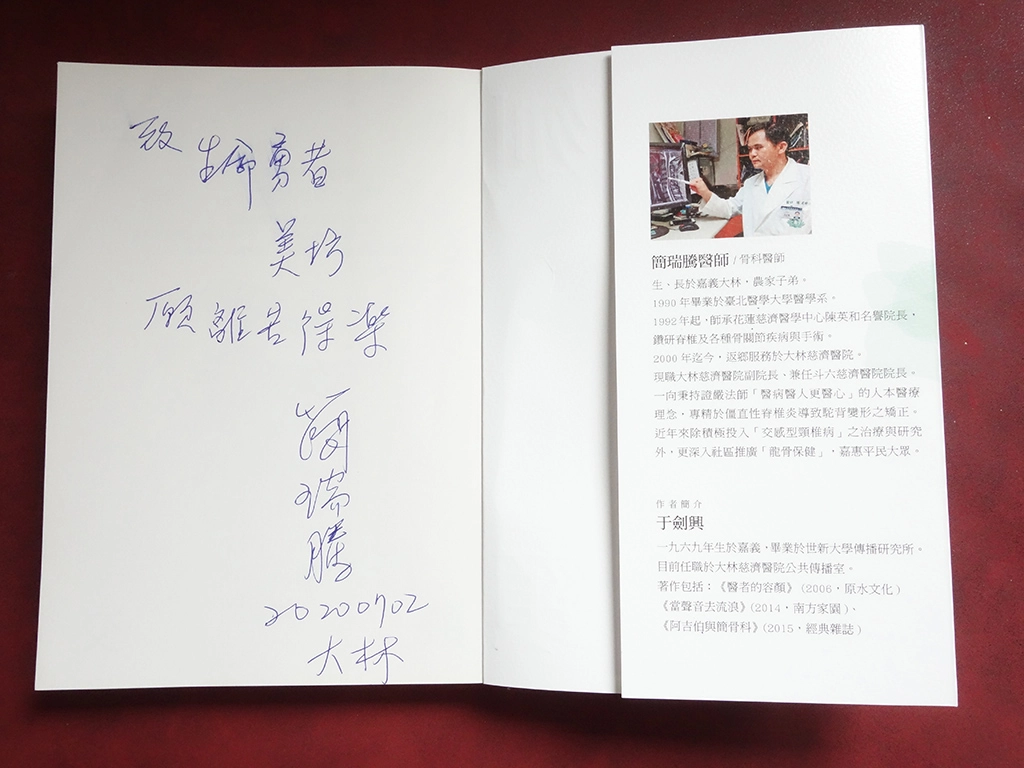 致
生命勇者
美坊
願離苦得樂
簡瑞騰
20200702
大林
簡瑞騰醫師 / 骨科醫師
生、長於嘉義大林,農家子弟。
1990 年畢業於臺北醫學大學醫學系。
1992 年起,師承花蓮慈濟醫學中心陳英和名譽院長,
鑽研脊椎及各種骨關節疾病與手術。
2000 年迄今,返鄉服務於大林慈濟醫院。
現職大林慈濟醫院副院長、兼任斗六慈濟醫院院長。
一向秉持證嚴法師「醫病醫人更醫心」的人本醫療
理念,專精於僵直性脊椎炎導致駝背變形之矯正。
近年來除積極投入「交感型頸椎病」之治療與研究
外,更深入社區推廣「龍骨保健」,嘉惠平民大眾。
作者簡介
于劍興
一九六九年生於嘉義,畢業於世新大學傳播研究所。
目前任職於大林慈濟醫院公共傳播室。
著作包括:《醫者的容顏》(2006,原水文化)
《當聲音去流浪》(2014,南方家園)、
《阿吉伯與簡骨科》(2015,經典雜誌)